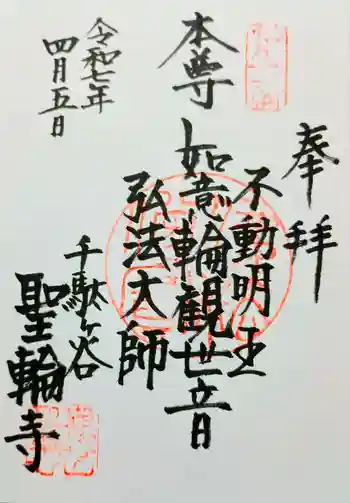 奉拝
不動明王
本尊 如意輪観世音
弘法大師
千駄ヶ谷
聖輪寺
令和七年
四月五日